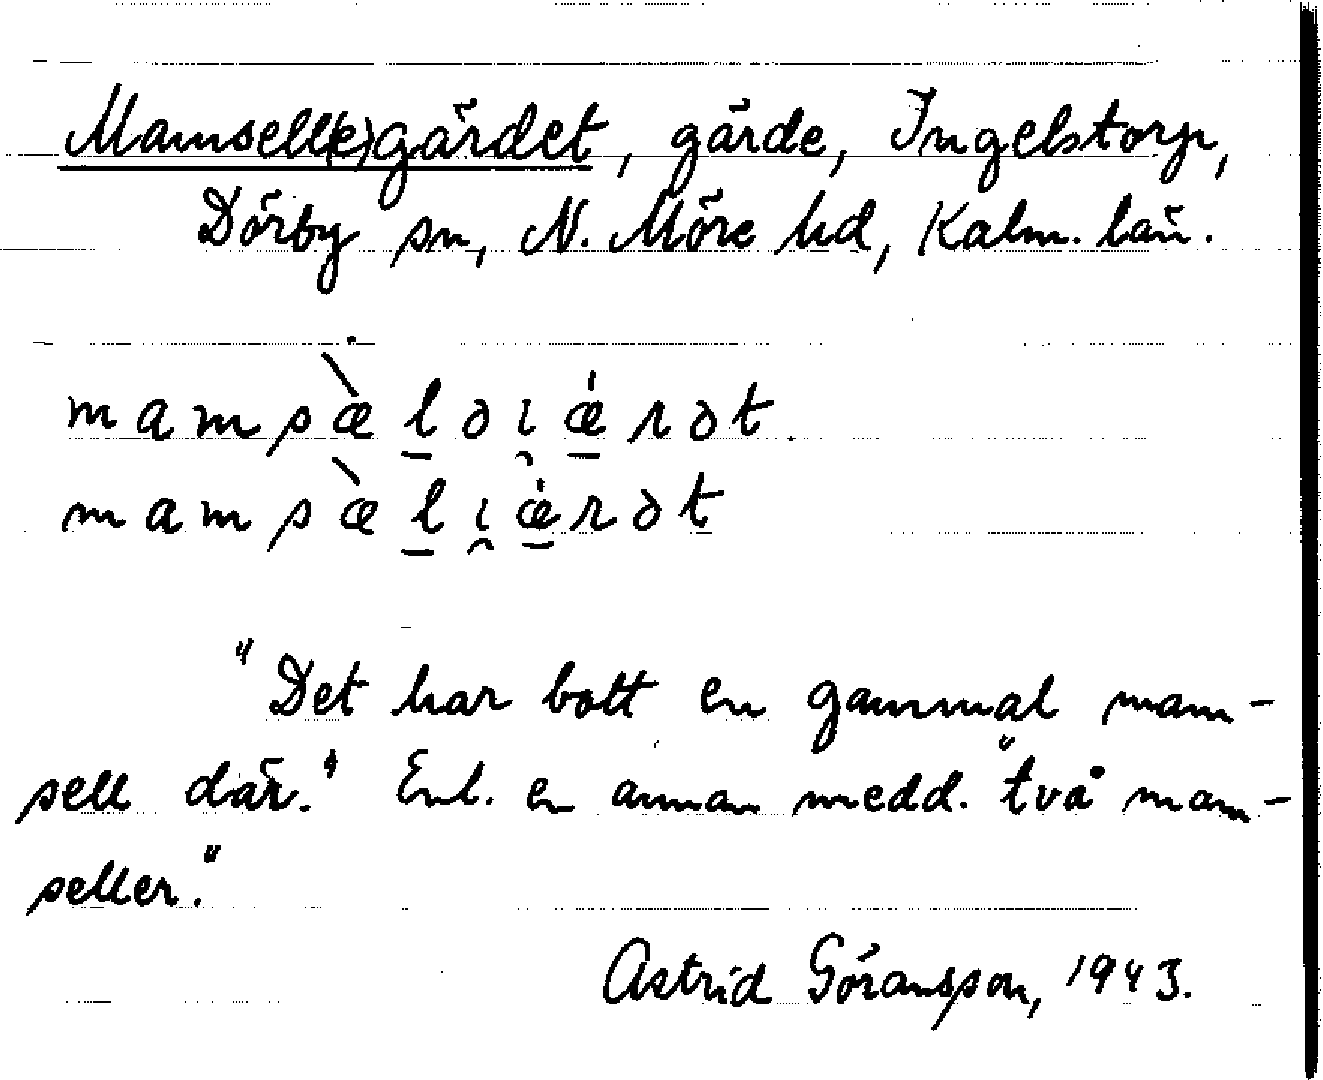 Mamsell(e)gärdet, gärde, Ingelstorp,
Dörby sn, N. Möre hd, Kalm. län.
mamsæ̀l̠əı̯ǽ̠rət.
mamsæ̀l̠ı̯ǽ̠rət
"Det har bott en gammal mam-
sell där." Enl. en annan medd. "två mam-
seller."
Astrid Göransson, 1943.